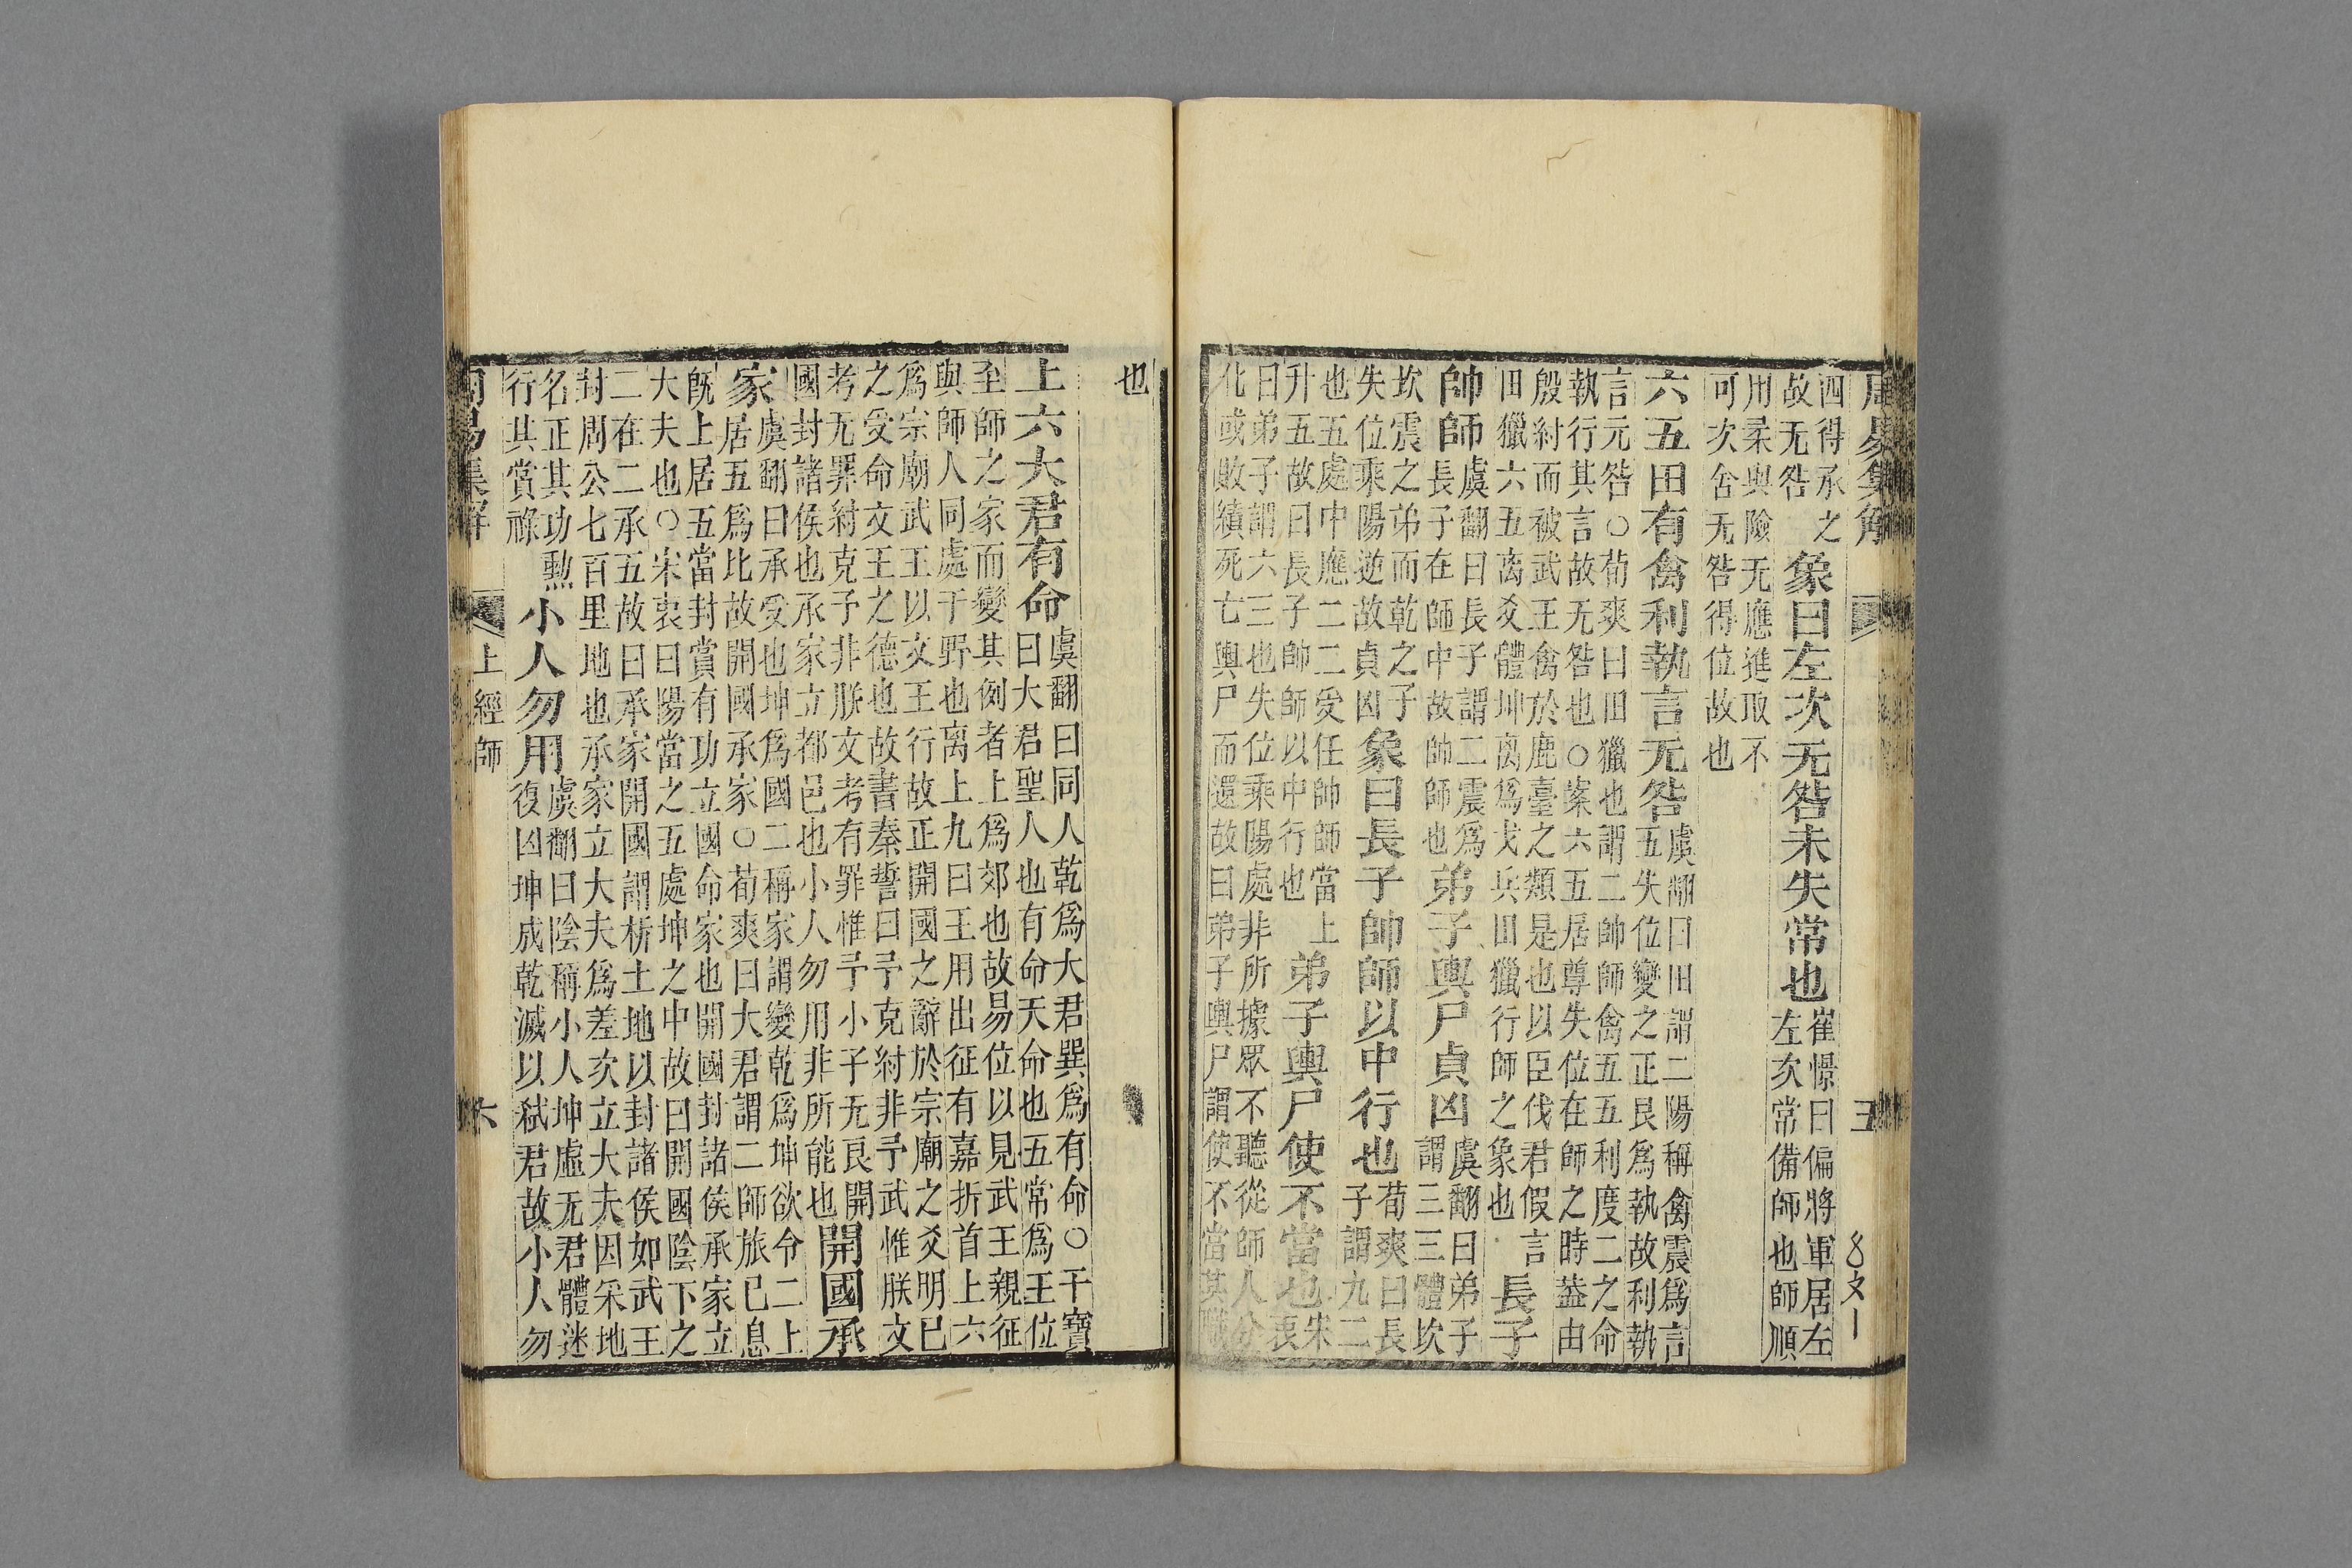 周易集解
五
四得承之
故无咎
象曰左次无咎未失常也
崔憬曰偏將軍居左
左次常備師也師順
用柔與險无應進取不
可次舍无咎得位故也
六五田有禽利執言无咎
虞翻曰田謂二陽稱禽震爲言
五失位變之正艮爲執故利執
言元咎○荀爽曰田獵也謂二帥師禽五五利度二之命
執行其言故无咎也○案六五居尊失位在師之時蓋由
殷紂而被武王禽於鹿臺之類是也以臣伐君假言
田獵六五离爻體坤离爲戈兵田獵行師之象也
長子
帥師
虞翻曰長子謂二震爲
長子在師中故帥師也
弟子輿尸貞凶
虞翻曰弟子
謂三三體坎
坎震之弟而乾之子
失位乘陽逆故貞凶
象曰長子帥師以中行也
荀爽曰長
子謂九二
也五處中應二二受任帥師當上
升五故曰長子帥師以中行也
弟子輿尸使不當也
宋
衷
曰弟子謂六三也失位乘陽處非所據眾不聽從師人分
化或敗績死亡輿尸而還故曰弟子輿尸謂使不當其職
也
上六大君有命
虞翻曰同人乾爲大君巽爲有命○干寶
曰大君聖人也有命天命也五常爲王位
至師之家而變其例者上爲郊也故易位以見武王親征
與師人同處于野也离上九曰王用出征有嘉折首上六
爲宗廟武王以文王行故正開國之辭於宗廟之爻明已
之受命文王之德也故書秦誓曰予克紂非予武惟朕文
考无罪紂克予非朕文考有罪惟予小子无良開
國封諸侯也承家立都邑也小人勿用非所能也
開國承
家
虞翻曰承受也坤爲國二稱家謂變乾爲坤欲令二上
居五爲比故開國承家○荀爽曰大君謂二師旅已息
既上居五當封賞有功立國命家也開國封諸侯承家立
大夫也○宋衷曰陽當之五處坤之中故曰開國陰下之
二在二承五故曰承家開國謂析土地以封諸侯如武王
封周公七百里地也承家立大夫爲差次立大夫因采地
名正其功勲
行其賞祿
小人勿用
虞翻曰陰稱小人坤虛无君體迷
復凶坤成乾滅以弒君故小人勿
周易集解
上經師
六